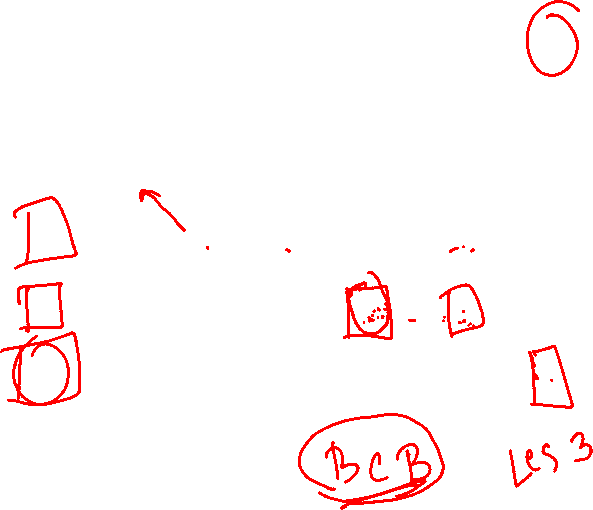 BCB
Les 3